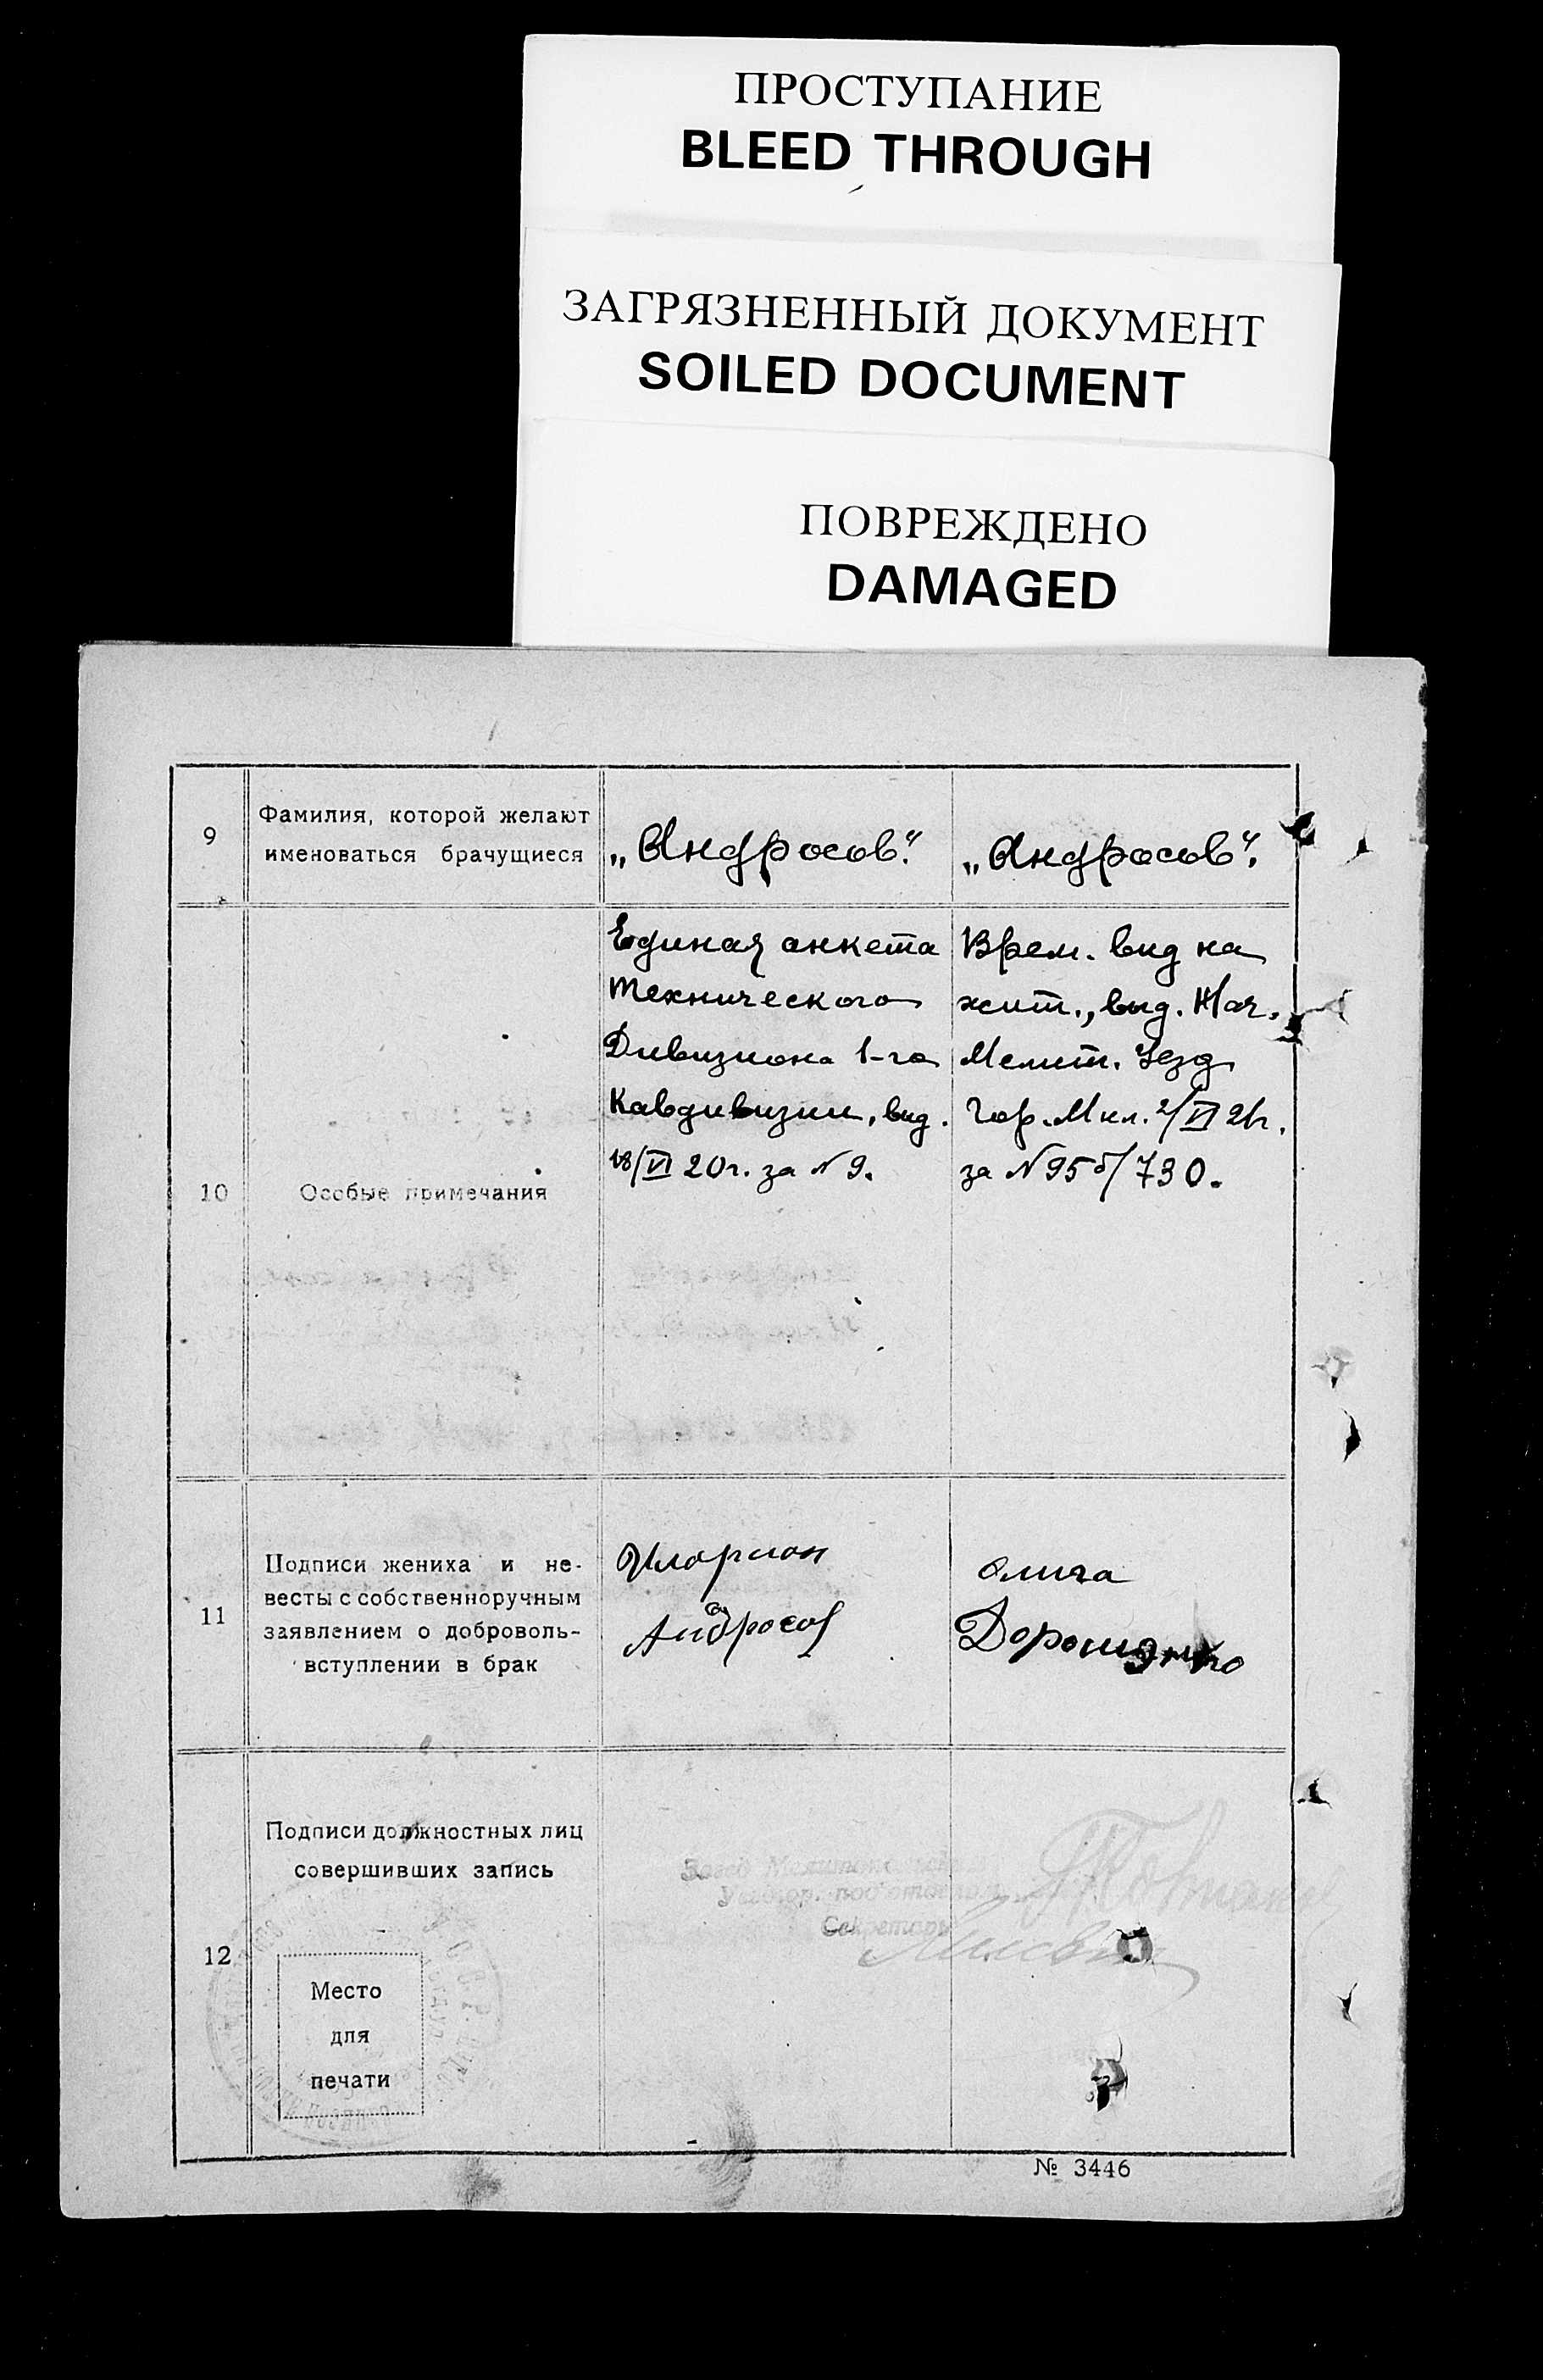 ПРОСТУПАНИЕ
BLEED THROUGH
ЗАГРЯЗНЕННЫЙ ДОКУМЕНТ
SOILED DOCUMENT
ПОВРЕЖДЕНО
DAMAGED
9
Фамилия, которой желают
именоваться брачущиеся
„Андросов“.
„Андросов“.
10
Особые примечания
Единая анкета
Технического
Дивизиона 1-го
Кавдивизии, выд.
18/VI 20г. за N 9.
Врем. вид на
жит., выд. Нач.
Мелит. Уезд
Гор. Мил. 2/VI 21г.
за N 95 /730.
11
Подписи жениха и не-
весты с собственноручным
заявлением о доброволь-
вступлении в брак
Иларион
Андросов
олига
Дорошэнко
12
Подписи должностных лиц
совершивших запись
Место
для
печати
Завед
под'отделом
Секретарь
№ 3446